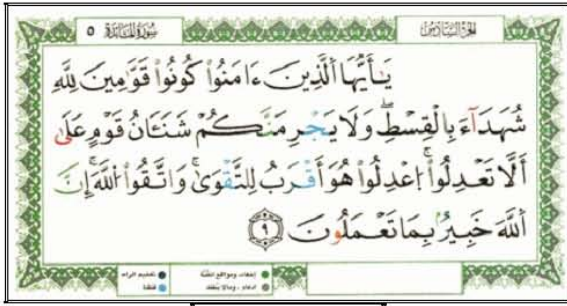 الجزء السادس
سورة المائدة ٥
يَـٰٓأَيُّهَا ٱلَّذِينَ ءَامَنُوا۟ كُونُوا۟ قَوَّٰمِينَ لِلَّهِ
شُهَدَآءَ بِٱلْقِسْطِ ۖ وَلَا يَجْرِمَنَّكُمْ شَنَـَٔانُ قَوْمٍ عَلَىٰٓ
أَلَّا تَعْدِلُوا۟ ۚ ٱعْدِلُوا۟ هُوَ أَقْرَبُ لِلتَّقْوَىٰ ۖ وَٱتَّقُوا۟ ٱللَّهَ ۚ إِنَّ
ٱللَّهَ خَبِيرٌۢ بِمَا تَعْمَلُونَ ٩
تفخيم الراء
إخفاء، ومواقع الغنة
قلقلة
إدغام، وما لا يلفظ